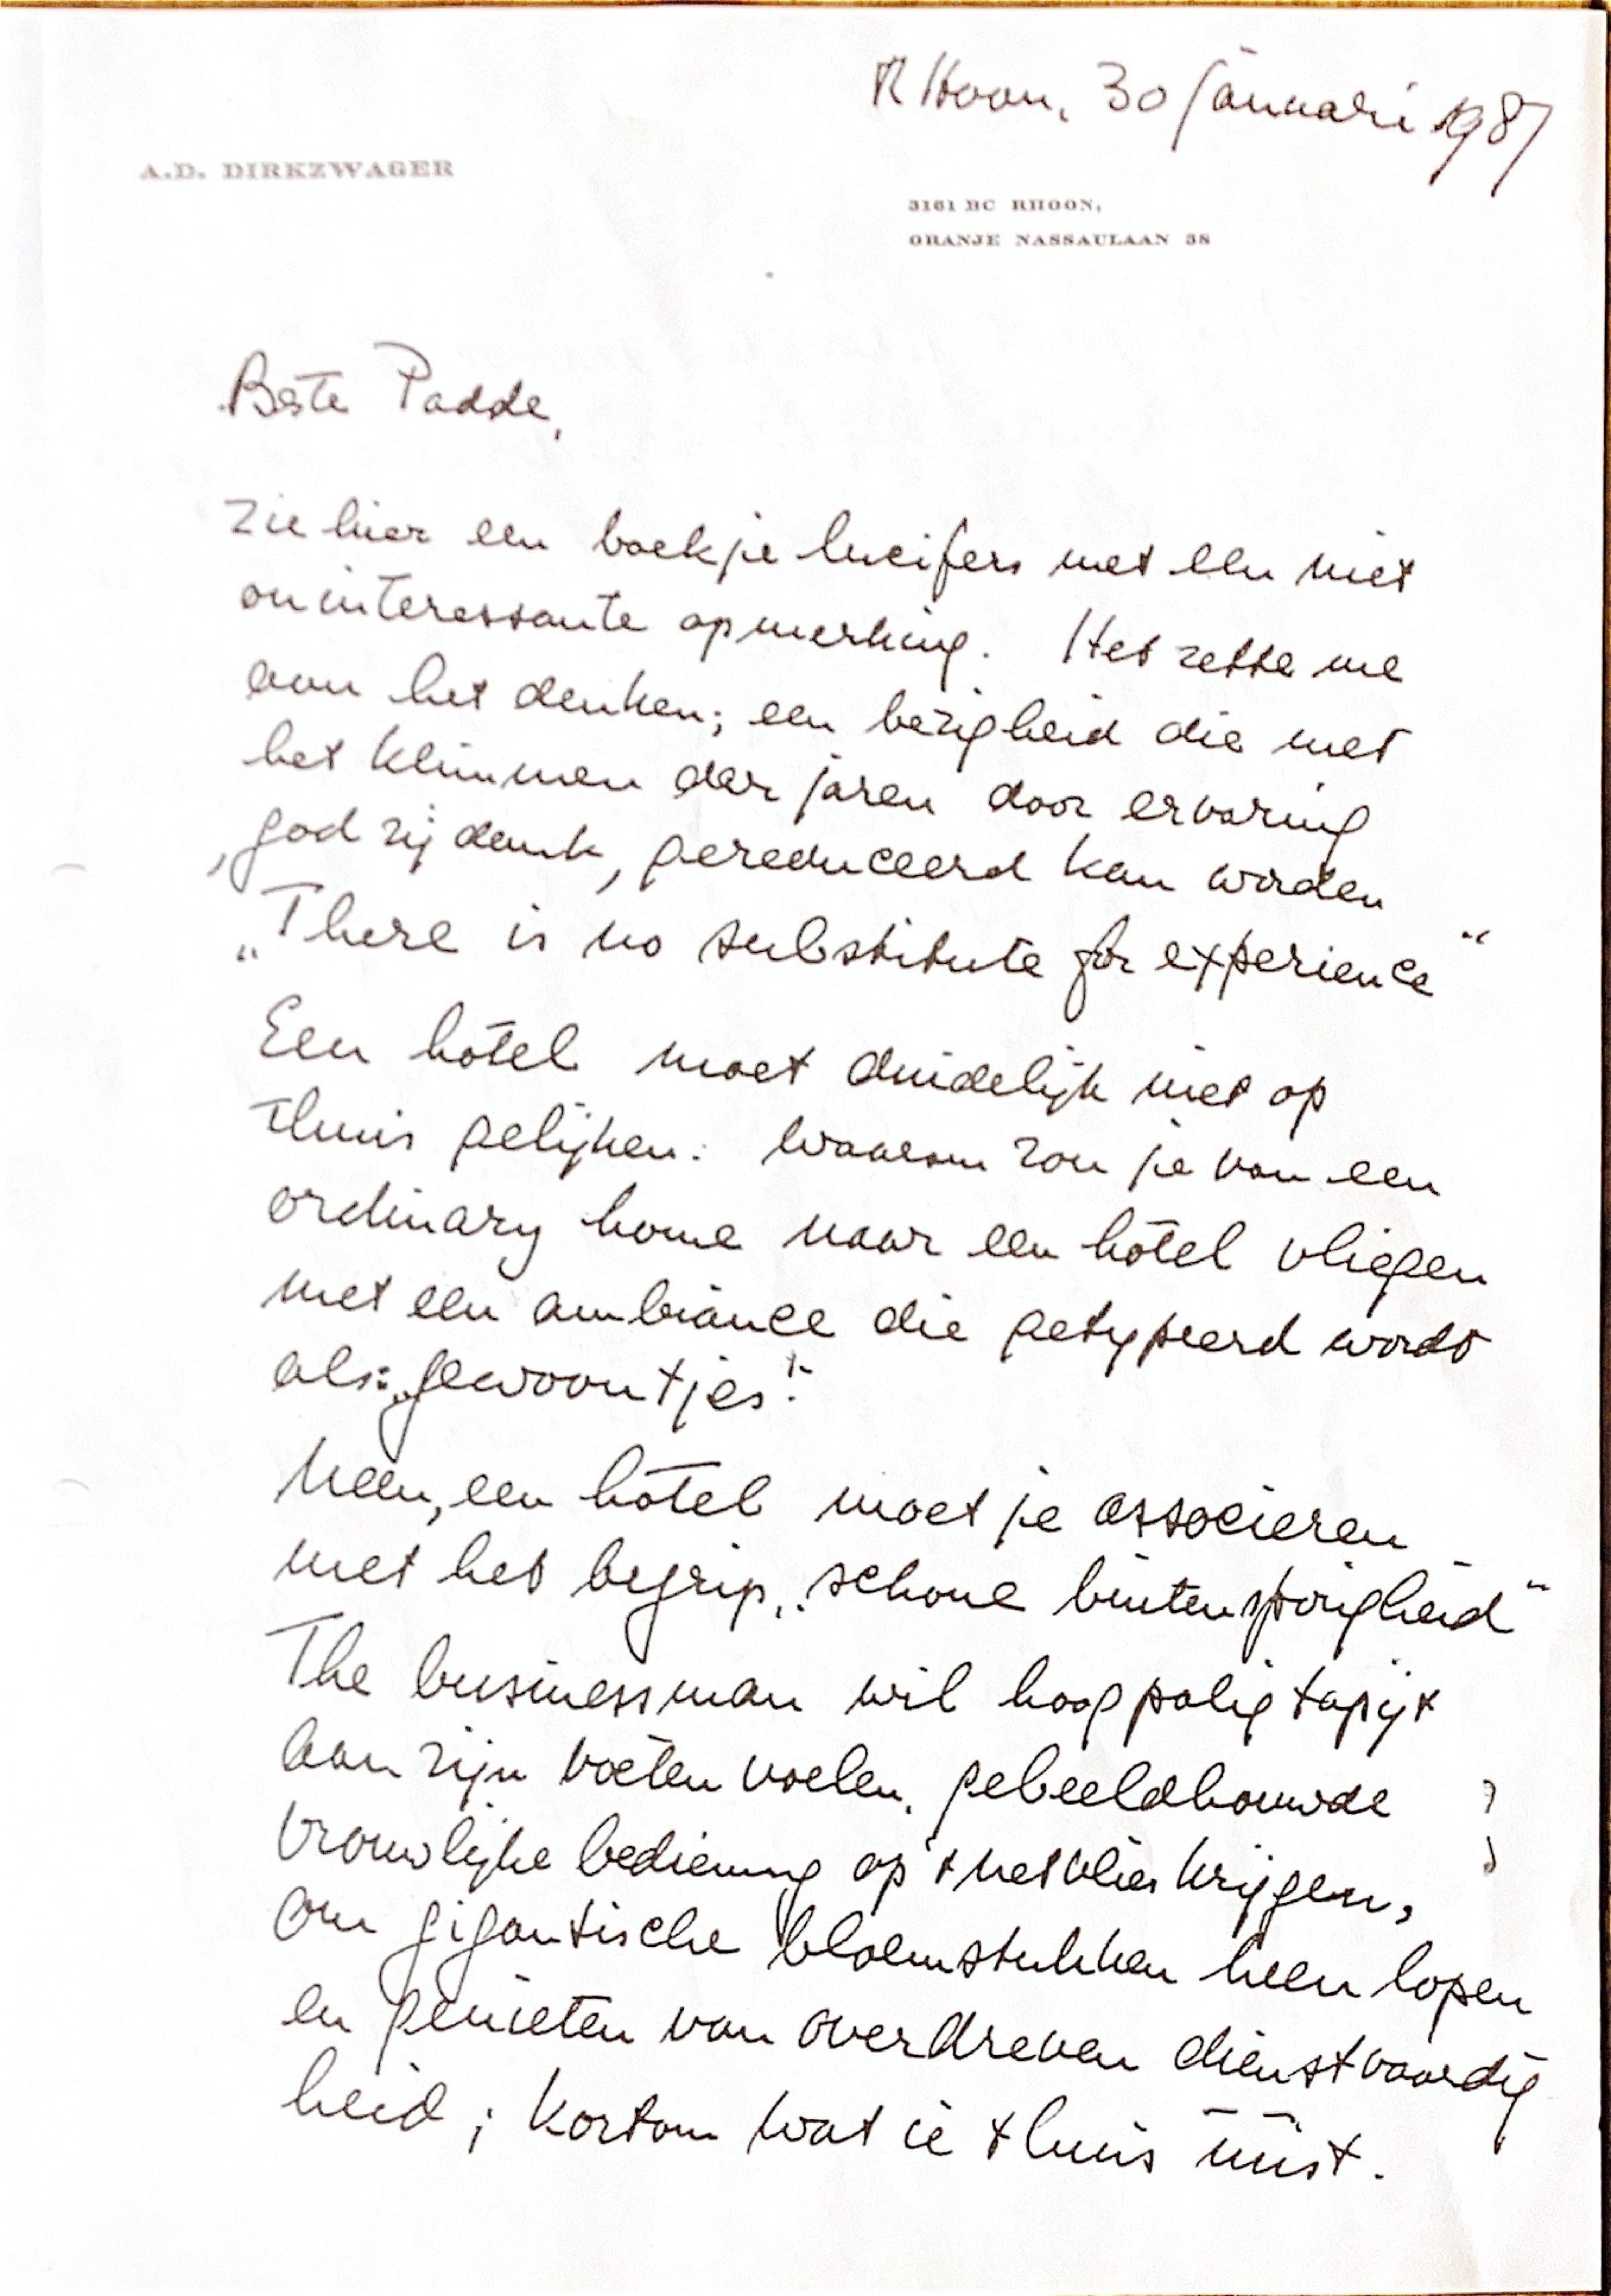 Rhoon, 30 januari 1987
A.D. DIRKZWAGER
3161 BC RHOON,
ORANJE NASSAULAAN 38
Beste Padde,
zie hier een boekje lucifers met een niet
oninteressante opmerking. Het zette me
aan het denken; een bezigheid die met
het klimmen der jaren door ervaring
, god zij dank, gereduceerd kan worden
„There is no substitute for experience“
Een hôtel moet duidelijk niet op
thuis gelijken: waarom zou je van een
ordinary home naar een hôtel vliegen
met een ambiance die getypeerd wordt
als: „gewoontjes“.
Neen, een hôtel moet je associeren
met het begrip „schone buitensporigheid“
The businessman wil hoogpolig tapijt
aan zijn voeten voelen, gebeeldhouwde
vrouwlijke bediening op 't netvlies krijgen,
om gigantische bloemstukken heen lopen
en genieten van overdreven dienstvaardig
heid; kortom wat ie thuis mist.